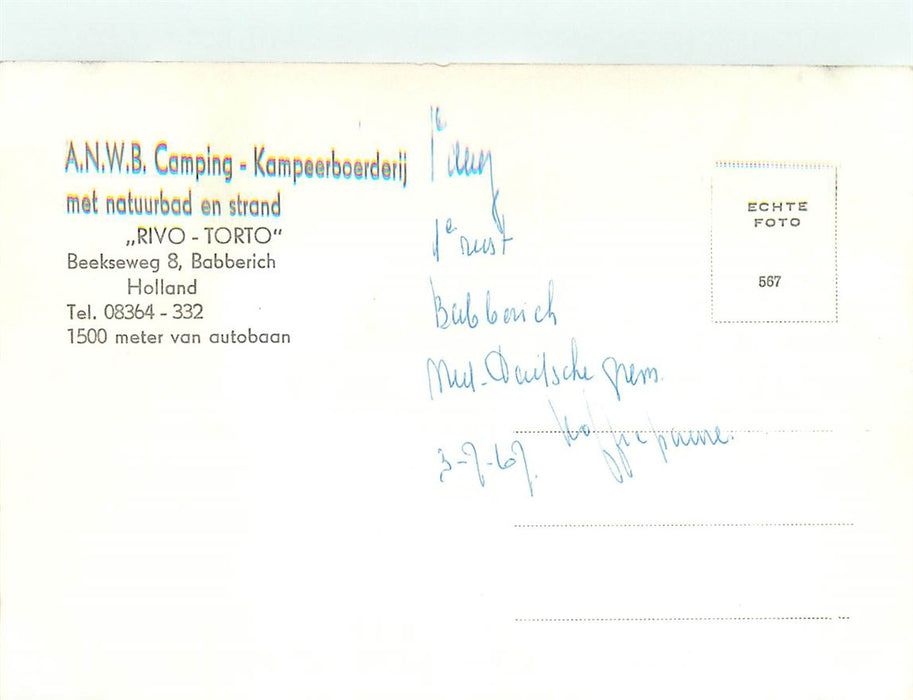 A.N.W.B. Camping - Kampeerboerderij
met natuurbad en strand
„RIVO - TORTO"
Beekseweg 8, Babberich
Holland
Tel. 08364 - 332
1500 meter van autobaan
1e rust
Babberich
Ned. Duitsche grens.
Koffiepauze.
3-7-67.
ECHTE
FOTO
567